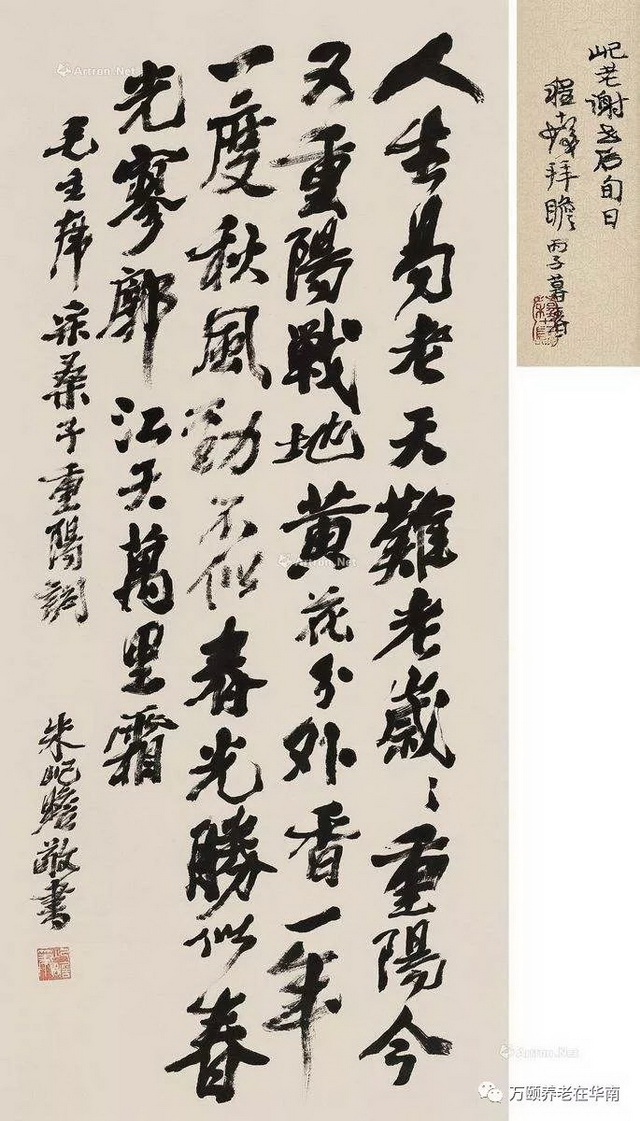 屺老谢世后旬日
程十髮拜瞻 丙子暮春
人生易老天難老歲〻重陽今
又重陽戰地黃花分外香一年
一度秋風勁不似春光勝似春
光寥廓江天萬里霜
毛主席采桑子重陽詞 朱屺瞻敬書
Artron.Net
Artron.Net
Artron.Net
Artron.Net
万颐养老在华南